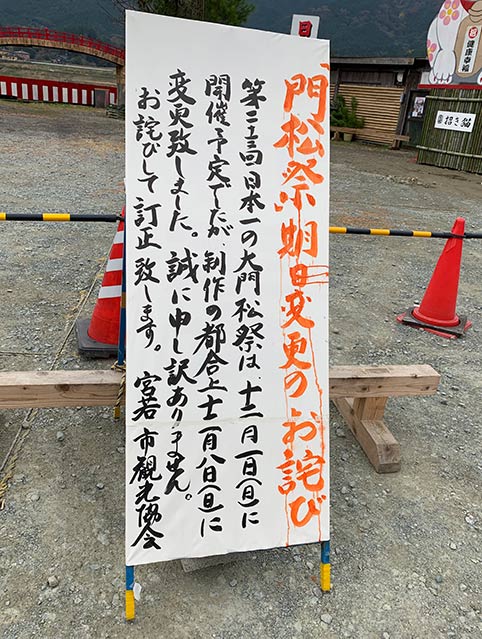 門松祭期日変更のお詫び
第二十三回日本一の大門松祭は、十二月一日(日)に
開催予定でしたが、制作の都合上十二月八日(日)に
変更致しました。誠に申し訳ありません。
お詫びして訂正致します。 宮若市観光協会
招き猫
健康幸福